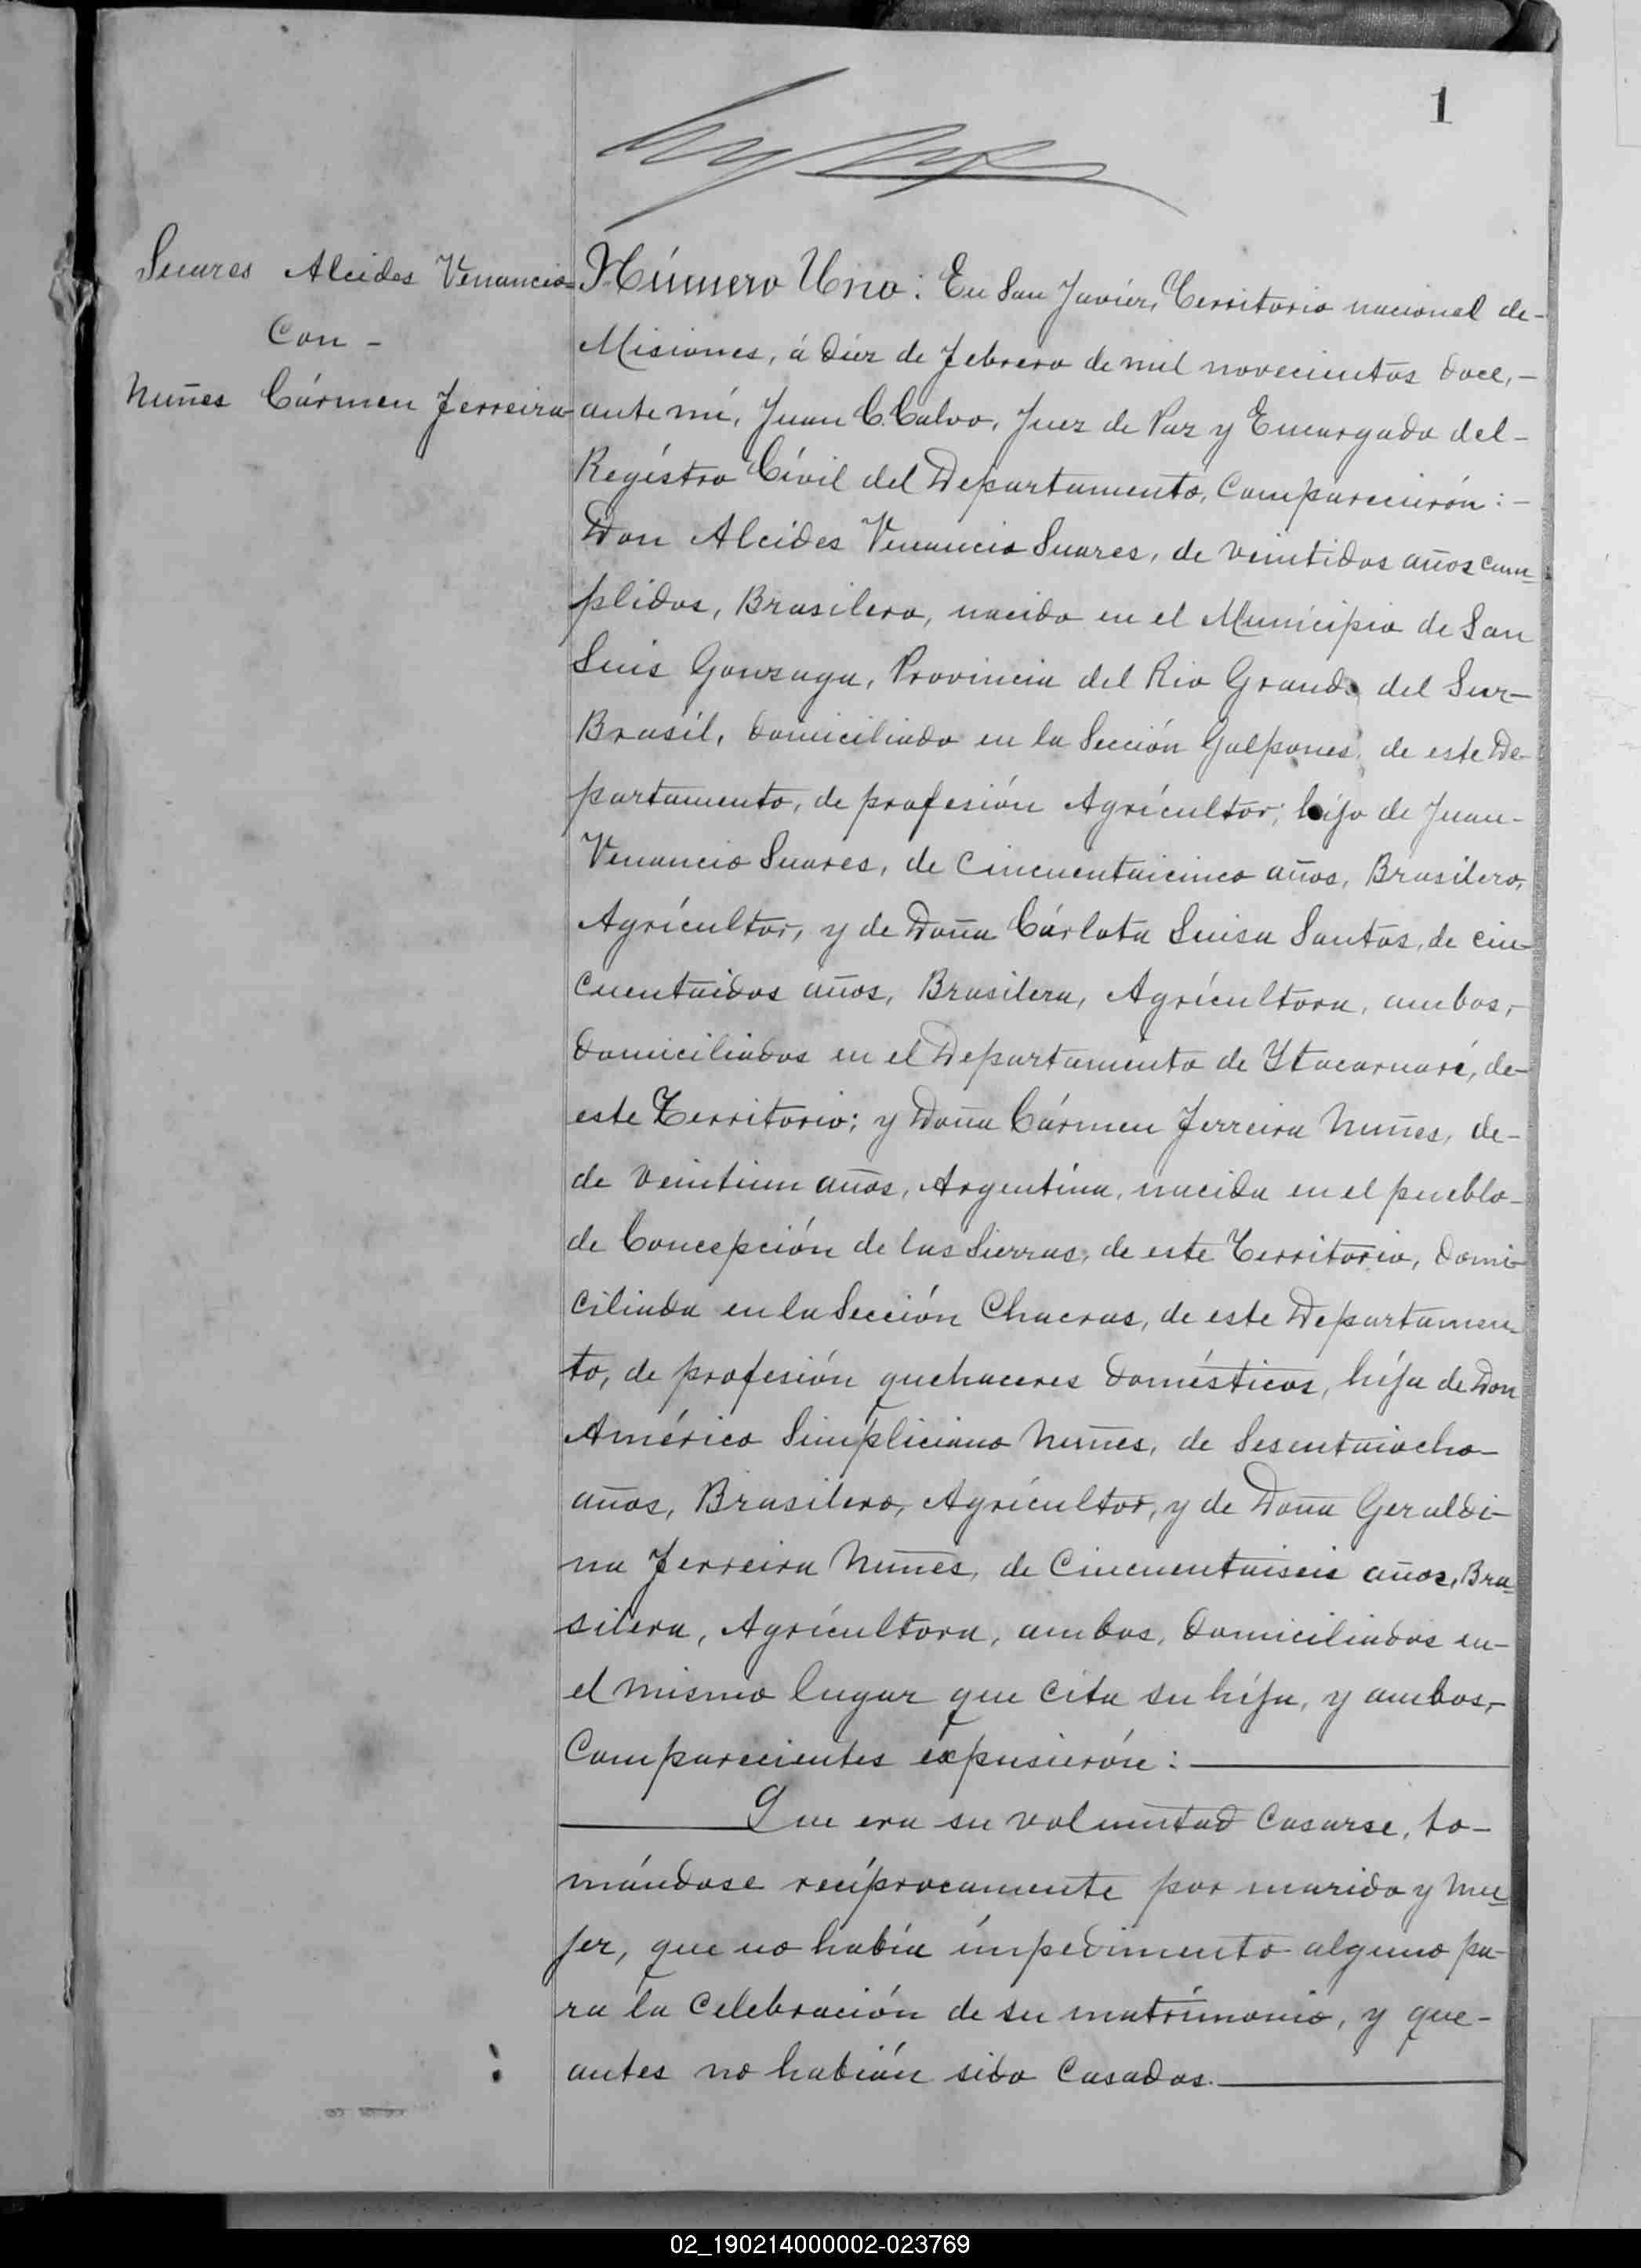 1
Suares Alcides Venancio
Con -
Nuñes Cármen Ferreira
Número Uno: En San Javiér, Territorio nacional de-
Misiones, á diez de febrero de mil novecientos doce,-
ante mí, Juan C. Calvo, Juez de Paz y Encargado del-
Regístro Cívil del Departamento, Comparecierón:-
Don Alcides Venancio Suares, de veintidos años cum-
plidos, Brasilero, nacido en el Municipio de San
Luis Gonzaga, Provincia del Rio Grande del Sur-
Brasíl, domiciliado en la Sección Galpones, de este De-
partamento, de profesión Agrícultor; hijo de Juan-
Venancio Suares, de Cincuentaicinco años, Brasilero,
Agrícultor, y de Doña Cárlota Luisa Santos, de cin-
cuentaidos años, Brasilera, Agrícultora, ambos,-
domiciliados en el Departamento de Ytacaruaré, de-
este Territorio; y Doña Cármen Ferreira Nuñes, de-
de veintiun años, Argentína, nacida en el pueblo-
de Concepción de las Sierras, de este Territorio, domi-
ciliada en la Sección Chacras, de este Departamen-
to, de profesión quehaceres domésticos, híja de Don
Américo Simpliciano Nuñes, de Sesentaiocho-
años, Brasilero, Agrícultor, y de Doña Geraldi-
na Ferreira Nuñes, de Cincuentaiseis años, Bra-
silera, Agrícultora, ambos, domiciliados en-
el mismo lugar que cita su híja, y ambos,-
Comparecientes expusierón:
Que era su voluntad Casarse, to-
mándose recíprocamente por marido y mu-
jer, que no había ímpedimento alguno pa-
ra la Celebración de su matrímonio, y que-
antes no habián sido Casados.
02_190214000002-023769